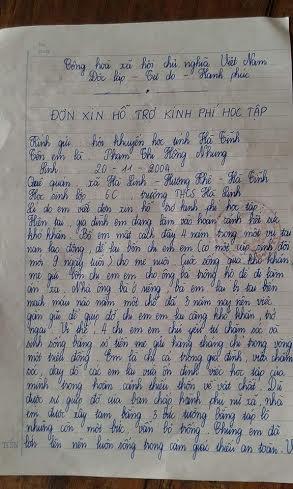 Cộng hoà xã hội chủ nghĩa Việt Nam
Độc lập - Tự do - Hạnh phúc
ĐƠN XIN HỖ TRỢ KINH PHÍ HỌC TẬP
Kính gửi: hội khuyến học tỉnh Hà Tĩnh
Tên em là: Phạm Thị Hồng Nhung
Sinh: 20 - 11 - 2004
Quê quán: xã Hà Linh - Hương Khê - Hà Tĩnh
Học sinh lớp: 6C trường THCS Hà Linh
Lí do em viết đơn xin hỗ trợ kinh phí học tập:
Hiện tại, gia đình em đang lâm vào hoàn cảnh hết sức
khó khăn. Bố em mất cách đây 4 năm trong một vụ tai
nạn lao động, để lại bốn chị em em (có một cặp sinh đôi
mới 9 tuổi) cho mẹ nuôi. Cuộc sống quá khó khăn,
mẹ gửi bốn chị em em cho ông bà trông hộ để đi làm
ăn xa. Nhà ông bà ở riêng, bà em lại bị tai biến
mạch máu não nằm một chỗ đã 3 năm nay nên việc
gần gũi để giúp đỡ chị em em lại càng khó khăn, trở
ngại. Vì thế, 4 chị em em chủ yếu tự chăm sóc và
sinh sống bằng số tiền mẹ gửi hàng tháng chỉ trong vòng
một triệu đồng. Em là chị cả trong gia đình, vừa chăm
sóc, dạy dỗ các em lại vừa ổn định việc học tập của
mình trong hoàn cảnh thiếu thốn về vật chất. Dù
được sự giúp đỡ của ban chấp hành phụ nữ xã, nhà
em được xây tạm bằng 3 bức tường bằng táp lô
nhưng còn một bức vẫn bỏ trống. Chúng em đã
lớn lên nên luôn sống trong cảm giác thiếu an toàn.